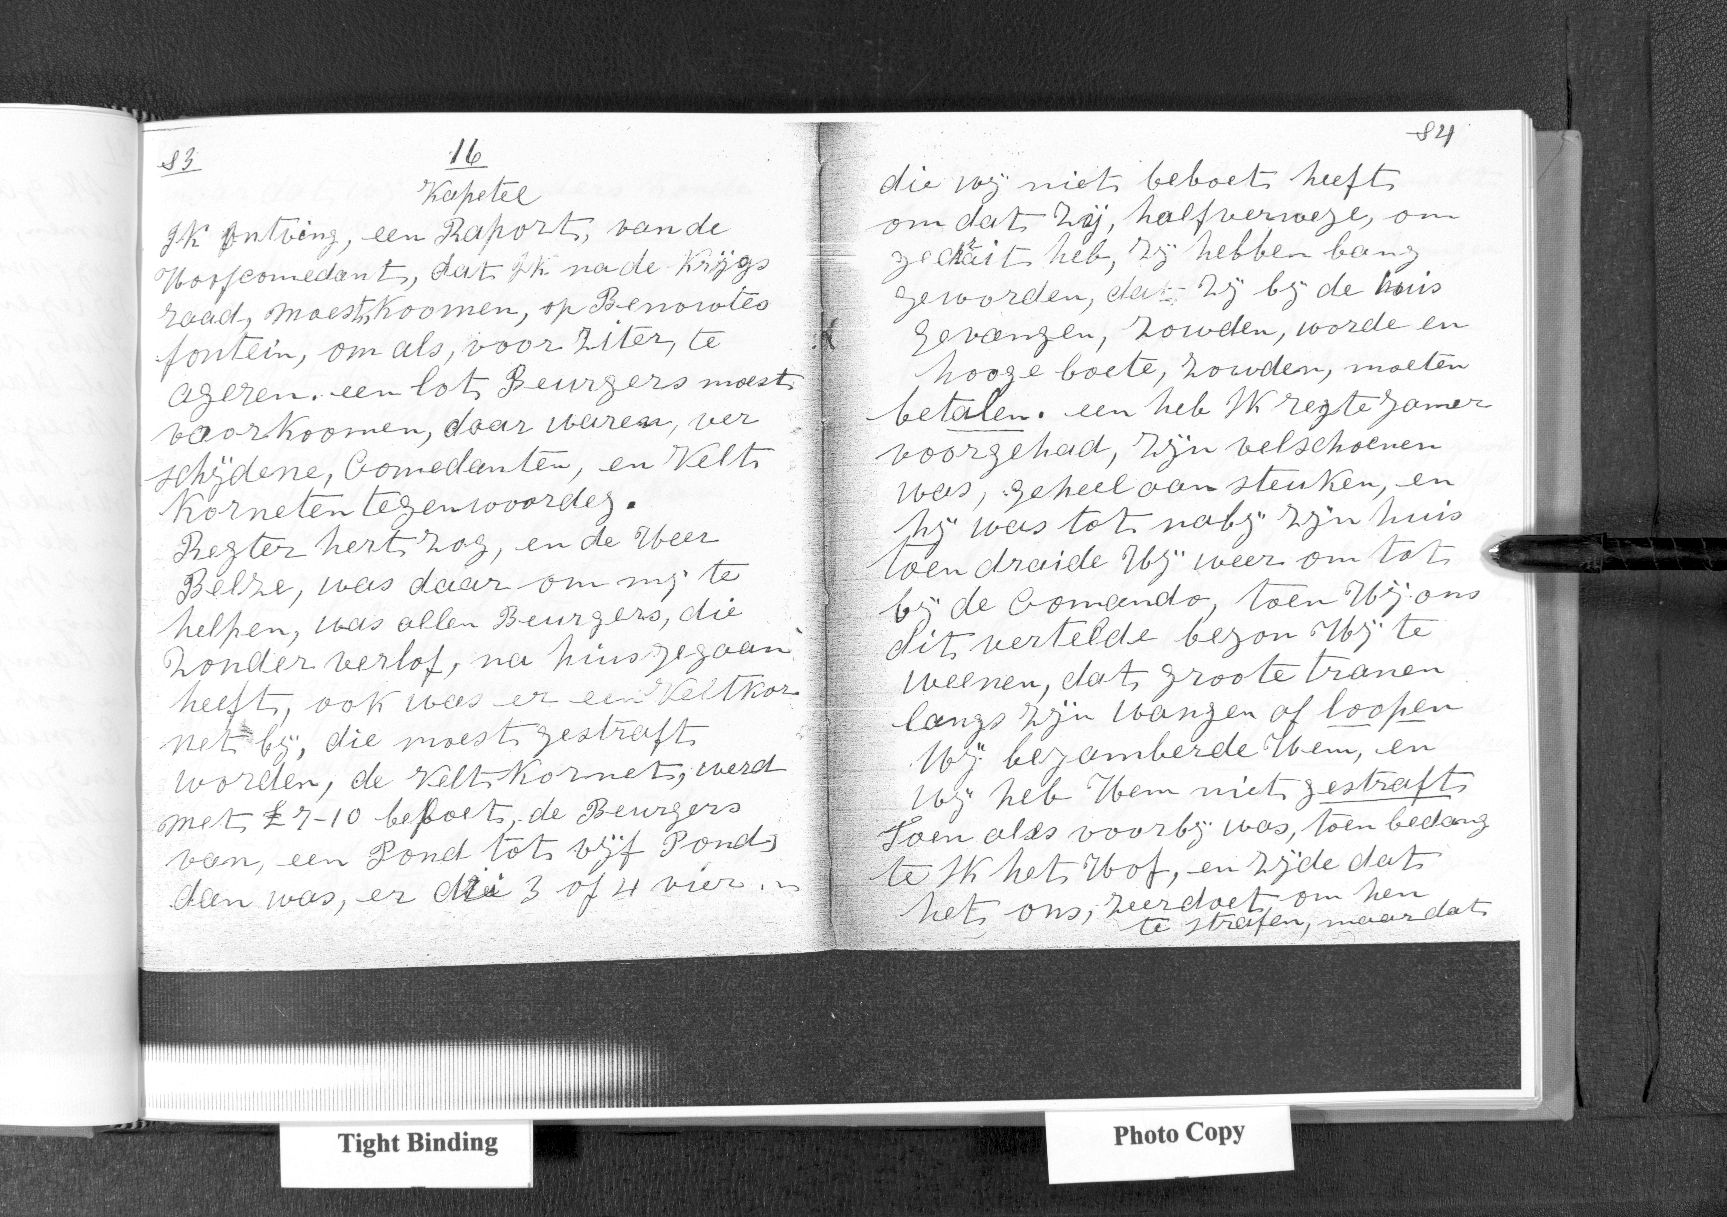 83
16
Kapetel
Ik ontving, een Raport, van de
Hoofcomedant, dat Ik na de Krijgs
raad, moest, koomen, op Benowtes
fontein, om als, voor Ziter, te
ageren. een lot, Beurgers moest
voorkoomen, daar waren, ver
schijdene, Comedanten, en Velt
Korneten tegenwoordeg.
Regter hertzog, en de Heer
Belze, was daar om mij te
helpen, was allen Beurgers, die
Zonder verlof, na huis gegaan
heeft, ook was er een Veltkor
net bij, die moest gestraft
worden, de Velt Kornet, werd
met £7-10 beboet, de Beurgers
van, een Pond tot vijf Ponds
dan was, er die 3 of 4 vier
84
die wij niet beboet heeft
om dat Zij, halfverwege, om
gedrait heb, Zij hebben bang
geworden, dat Zij bij de huis
gevangen, Zowden, worde en
hooge boete, Zowden, moeten
betalen. een heb Ik regte Jamer
voorgehad, Zijn velschoenen
was, geheel aan steuken, en
hij was tot nabij Zijn huis
toen draide Hij weer om tot
bij de Comando, toen Hij ons
dit vertelde begon Hij te
weenen, dat groote tranen
langs Zijn wangen af loopen
Wij bejamberde Hem, en
wij heb Hem niet gestraft
Toen alds voorbij was, toen bedang
te Ik het Hof, en Zijde dat
het ons, zeerdoet, om hen
te strafen, maar dat
Tight Binding
Photo Copy